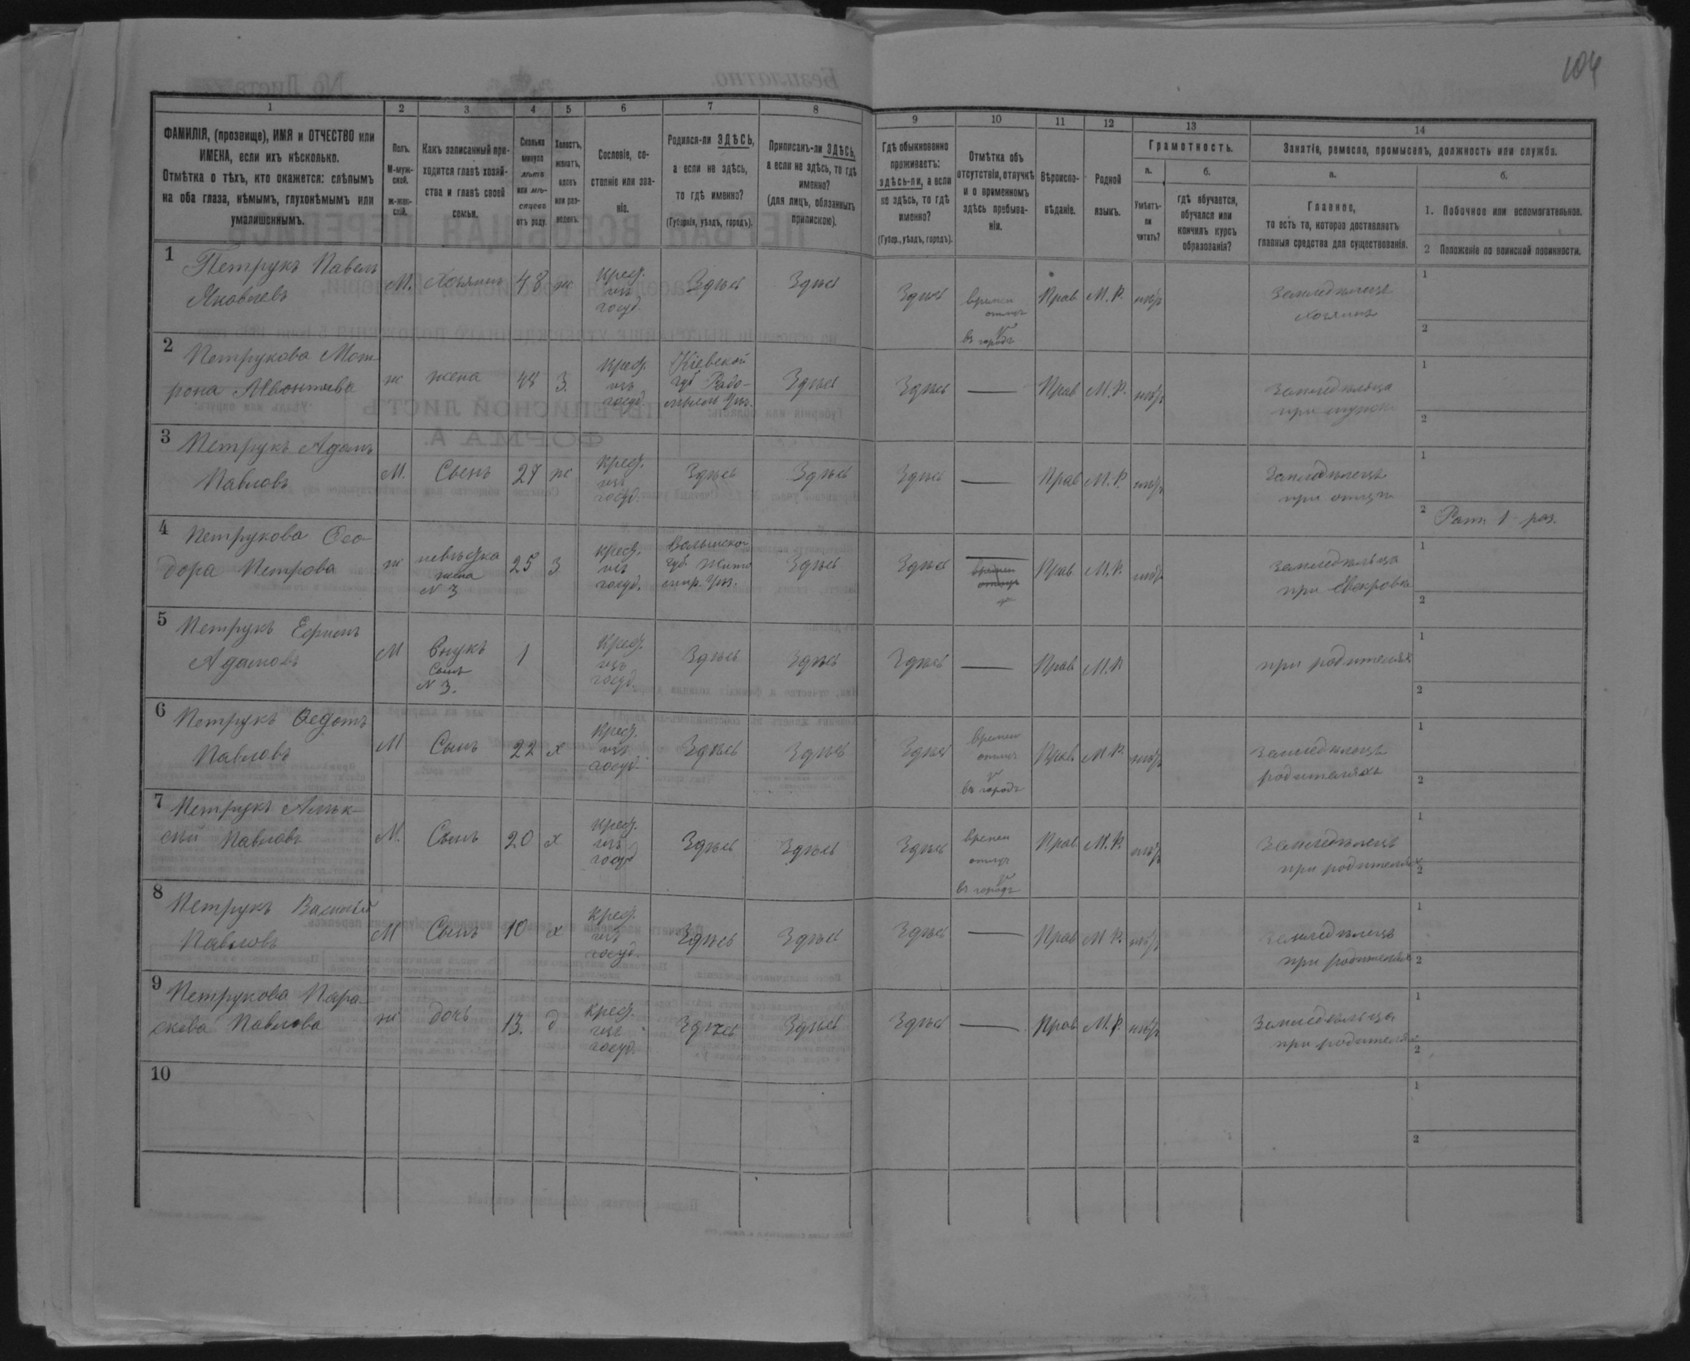 104
1
2
3
4
5
6
7
8
9
10
11
12
13
14
ФАМИЛІЯ, (прозвище), ИМЯ и ОТЧЕСТВО или
ИМЕНА, если ихъ нѣсколько.
Отмѣтка о тѣхъ, кто окажется: слѣпымъ
на оба глаза, нѣмымъ, глухонѣмымъ или
умалишеннымъ.
Полъ.
М-муж-
ской.
ж-жен-
скій.
Какъ записанный при-
ходится главѣ хозяй-
ства и главѣ своей
семьи.
Сколько
минуло
лѣтъ
или мѣ-
сяцевъ
отъ роду.
Холостъ,
женатъ,
вдовъ
или раз-
веденъ.
Сословіе, со-
стояніе или зва-
ніе.
Родился-ли ЗДѢСЬ,
а если не здѣсь,
то гдѣ именно?
(Губернія, уѣздъ, городъ).
Приписанъ-ли ЗДѢСЬ,
а если не здѣсь, то гдѣ
именно?
(для лицъ, обязанныхъ
припискою).
Гдѣ обыкновенно
проживаетъ:
здѣсь-ли, а если
не здѣсь, то гдѣ
именно?
(Губер., уѣздъ, городъ).
Отмѣтка объ
отсутствіи, отлучкѣ
и о временномъ
здѣсь пребыва-
ніи.
Вѣроиспо-
вѣданіе.
Родной
языкъ.
Грамотность.
а.
Умѣетъ-
ли
читать?
б.
гдѣ обучается,
обучался или
кончилъ курсъ
образованія?
Занятіе, ремесло, промыселъ, должность или служба.
а.
Главное,
то есть то, которое доставляетъ
главныя средства для существованія.
б.
1. Побочное или вспомогательное.
2 Положеніе по воинской повинности.
1
Петрукъ Павелъ
Яковлевъ
М. Хозяинъ 48 ж
крес.
изъ
госуд.
Здѣсь Здѣсь Здѣсь
времен
отлуч
въ городъ
Прав М.Р. нѣтъ
Земледѣлецъ
хозяинъ
1
2
2
Петрукова Мот
рона Леонтьева
ж жена 44 З
крес.
изъ
госуд.
Кіевской
губ Радо-
мысл. Уѣз.
Здѣсь Здѣсь — Прав М.Р. нѣтъ
Земледѣлица
при мужѣ
1
2
3
Петрукъ Адамъ
Павловъ
М. Сынъ 27 ж
крес.
изъ
госуд.
Здѣсь Здѣсь Здѣсь — Прав М.Р. нѣтъ
Земледѣлецъ
при отцѣ
1
2 Ратн 1 раз.
4
Петрукова Фео
дора Петрова
ж невѣстка
жена
N 3
25 З
крес.
изъ
госуд.
Волынской
губ. Жито
мір. Уѣз.
Здѣсь Здѣсь —
времен
отлуч
Прав М.Р. нѣтъ
Земледѣлица
при свекровѣ
1
2
5
Петрукъ Ефимъ
Адамовъ
М Внукъ
Сынъ
N 3.
1
крес.
изъ
госуд.
Здѣсь Здѣсь Здѣсь — Прав М.Р
при родителяхъ
1
2
6
Петрукъ Федотъ
Павловъ
М Сынъ 22 х
крес.
изъ
госуд.
Здѣсь Здѣсь Здѣсь
времен
отлуч
въ городъ
Прав М.Р. нѣтъ
Земледѣлецъ
родителяхъ
1
2
7
Петрукъ Алек-
сѣй Павловъ
М. Сынъ 20 х
крес.
изъ
госуд
Здѣсь Здѣсь Здѣсь
времен
отлуч
въ городъ
Прав М.Р. нѣтъ
Земледѣлецъ
при родителях
1
2
8
Петрукъ Василій
Павловъ
М Сынъ 10 х
крес.
изъ
госуд.
Здѣсь Здѣсь Здѣсь — Прав М.Р. нѣтъ
Земледѣлецъ
при родителях
1
2
9
Петрукова Пара
скева Павлова
ж дочь 13. д
крес.
изъ
госуд.
Здѣсь Здѣсь Здѣсь — Прав М.Р нѣтъ
Земледѣлица
при родителях
1
2
10
1
2